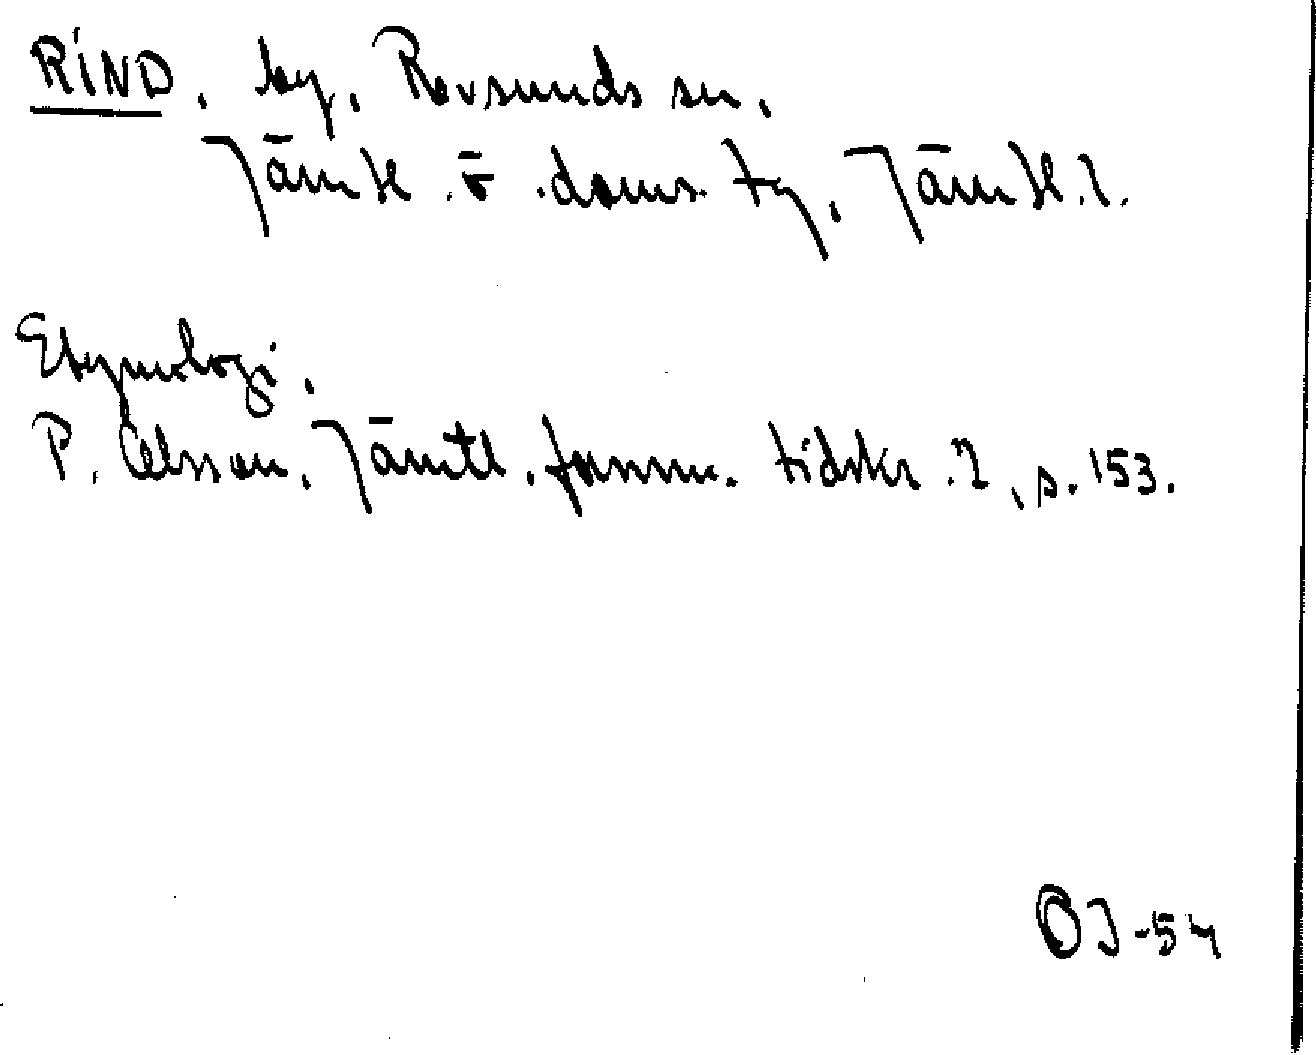 RIND, by, Revsunds sn,
Jämtl. ö. doms. tg, Jämtl. l.
Etymologi.
P. Olsson, Jämtl. fornm. tidskr. 2, s. 153.
OJ -54